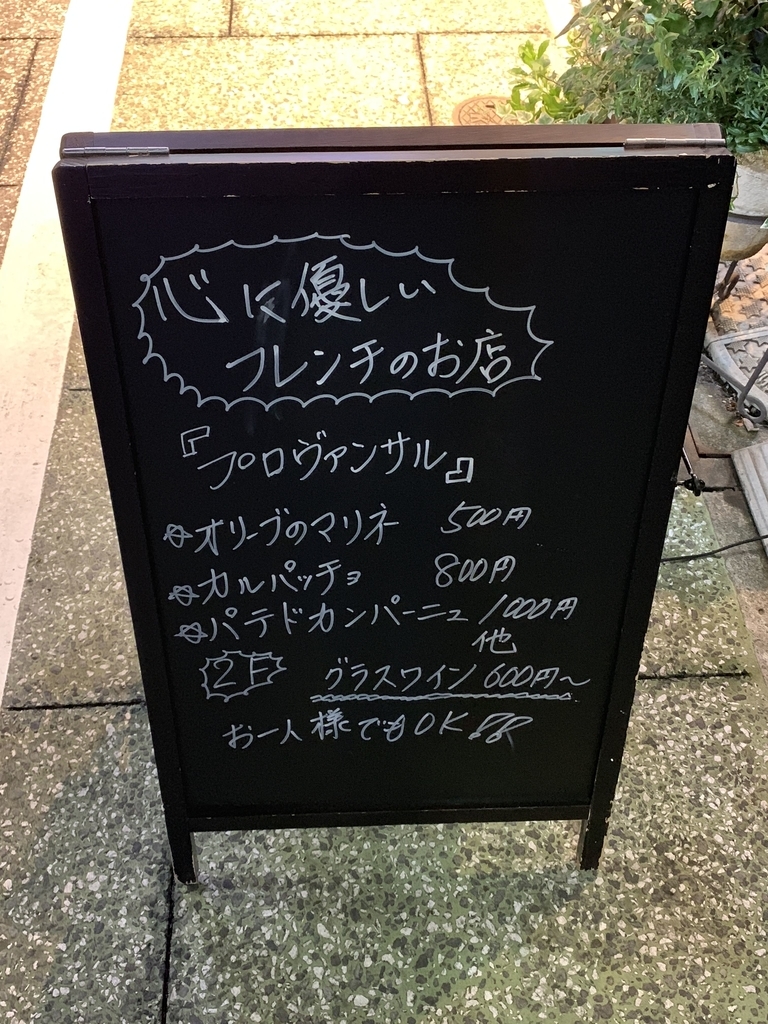 心に優しい
フレンチのお店
『プロヴァンサル』
☆オリーブのマリネ 500円
☆カルパッチョ 800円
☆パテドカンパーニュ 1000円
他
2F グラスワイン 600円〜
お一人様でもOK!!